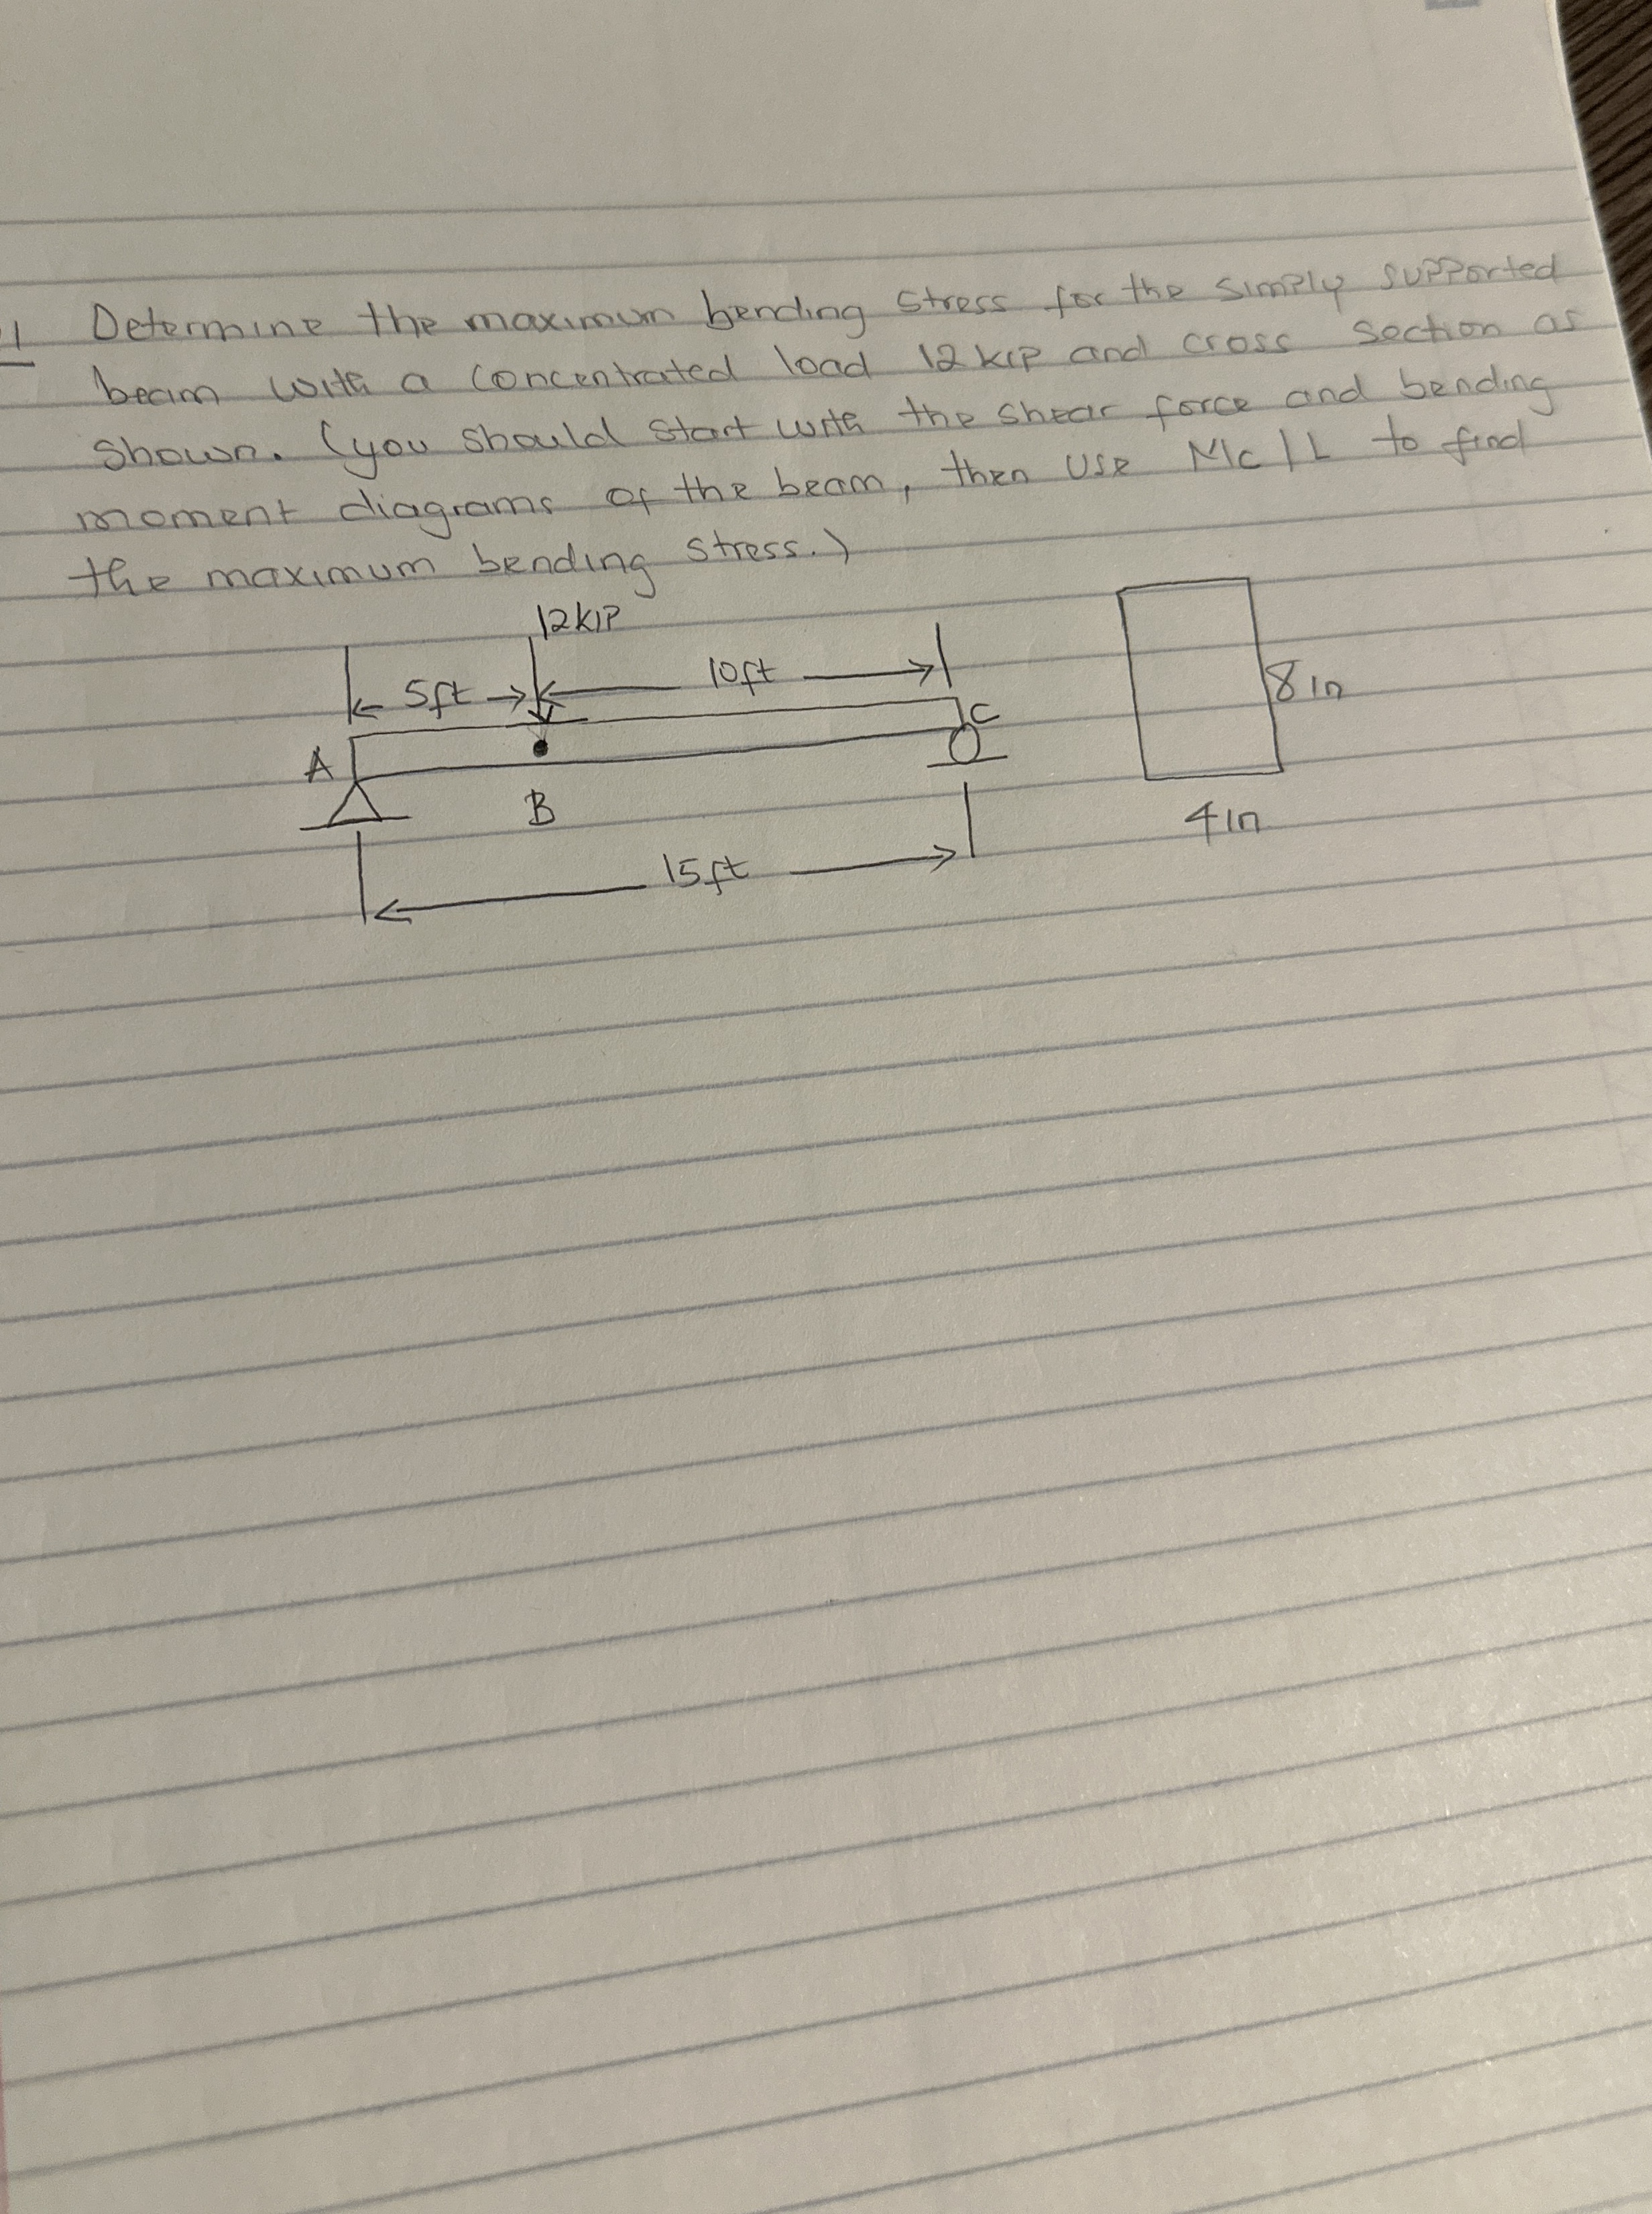 1 Determine the maximum bending stress for the simply supported
beam with a concentrated load 12 kip and cross section as
shown. (you should start with the shear force and bending
moment diagrams of the beam, then use Mc/L to find
the maximum bending stress.)
12KIP
5ft 10ft
8in
A C
B
4in
15ft